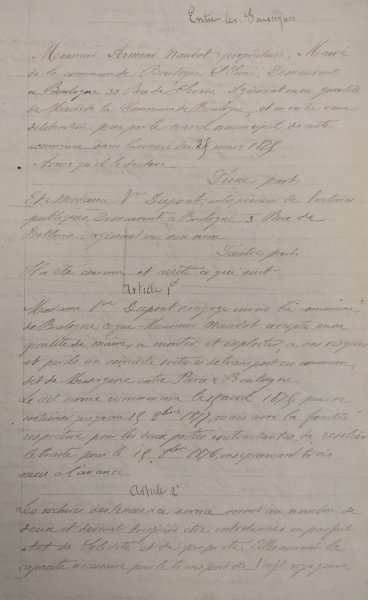 Entre les Soussignés
Monsieur Armand Naudot, propriétaire, Maire
de la commune de Boulogne S Seine, Demeurant
a Boulogne 30 Rue de Agissant en sa qualité
de Maire de la Commune de Boulogne, et en vertu d'une
deliberation prise par le conseil municipal de cette
commune dans sa séance du 28 mars 1875
Ainsi qu'il le declare
D'une part
Et Madame Vve Dupont entrepreneur de Voitures
publiques Demeurant a Boulogne 3 Rue de
agissant en son nom
D'autre part
Il a été convenu et arrêté ce qui suit
Article 1er
Madame Vve Dupont s'engage envers la commune
de Boulogne, ce que Monsieur Naudot accepte en sa
qualité de maire, a monter et exploiter a ses risques
et perils un service de voitures de transport en commun
dit de Messagerie entre Paris & Boulogne.
Le dit service commencera le 1875 pour se
continuer jusqu'au 15 8bre 1877 mais avec la faculté
respective pour les deux parties contractantes de resilier
le traité pour le 15 1876, en se prevenant trois
mois a l'avance
Article 2e
Les voitures des tinées a ce service seront au nombre de
deux et devront toujours etre entretenues en parfait
etat de Solidité et de propreté. Elles auront la
capacité necessaire pour le transport de Vingt voyageurs.